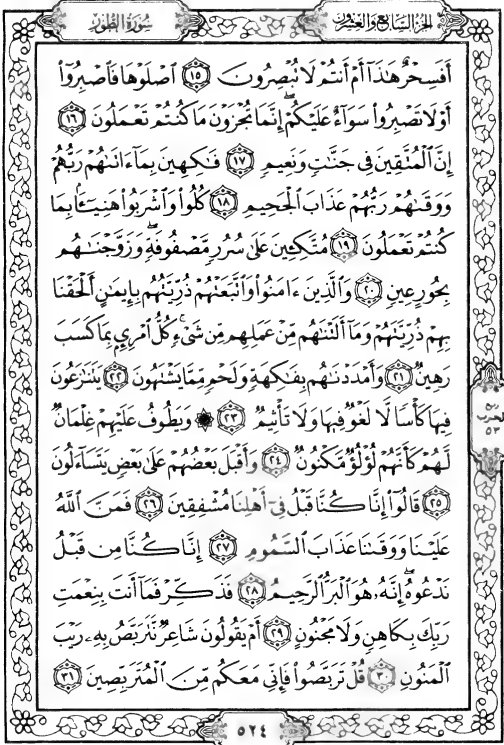 الجزء السابع والعشرون
سُورَةُ الطُّورِ
أَفَسِحْرٌ هَٰذَآ أَمْ أَنتُمْ لَا تُبْصِرُونَ ١٥ ٱصْلَوْهَا فَٱصْبِرُوٓا۟
أَوْ لَا تَصْبِرُوا۟ سَوَآءٌ عَلَيْكُمْ ۖ إِنَّمَا تُجْزَوْنَ مَا كُنتُمْ تَعْمَلُونَ ١٦
إِنَّ ٱلْمُتَّقِينَ فِى جَنَّٰتٍ وَنَعِيمٍ ١٧ فَٰكِهِينَ بِمَآ ءَاتَىٰهُمْ رَبُّهُمْ
وَوَقَىٰهُمْ رَبُّهُمْ عَذَابَ ٱلْجَحِيمِ ١٨ كُلُوا۟ وَٱشْرَبُوا۟ هَنِيٓـًٔۢا بِمَا
كُنتُمْ تَعْمَلُونَ ١٩ مُتَّكِـِٔينَ عَلَىٰ سُرُرٍ مَّصْفُوفَةٍ ۖ وَزَوَّجْنَٰهُم
بِحُورٍ عِينٍ ٢٠ وَٱلَّذِينَ ءَامَنُوا۟ وَٱتَّبَعَتْهُمْ ذُرِّيَّتُهُم بِإِيمَٰنٍ أَلْحَقْنَا
بِهِمْ ذُرِّيَّتَهُمْ وَمَآ أَلَتْنَٰهُم مِّنْ عَمَلِهِم مِّن شَىْءٍ ۚ كُلُّ ٱمْرِئٍۭ بِمَا كَسَبَ
رَهِينٌ ٢١ وَأَمْدَدْنَٰهُم بِفَٰكِهَةٍ وَلَحْمٍ مِّمَّا يَشْتَهُونَ ٢٢ يَتَنَٰزَعُونَ
فِيهَا كَأْسًا لَّا لَغْوٌ فِيهَا وَلَا تَأْثِيمٌ ٢٣ ۞ وَيَطُوفُ عَلَيْهِمْ غِلْمَانٌ
لَّهُمْ كَأَنَّهُمْ لُؤْلُؤٌ مَّكْنُونٌ ٢٤ وَأَقْبَلَ بَعْضُهُمْ عَلَىٰ بَعْضٍ يَتَسَآءَلُونَ
٢٥ قَالُوٓا۟ إِنَّا كُنَّا قَبْلُ فِىٓ أَهْلِنَا مُشْفِقِينَ ٢٦ فَمَنَّ ٱللَّهُ
عَلَيْنَا وَوَقَىٰنَا عَذَابَ ٱلسَّمُومِ ٢٧ إِنَّا كُنَّا مِن قَبْلُ
نَدْعُوهُ ۖ إِنَّهُۥ هُوَ ٱلْبَرُّ ٱلرَّحِيمُ ٢٨ فَذَكِّرْ فَمَآ أَنتَ بِنِعْمَتِ
رَبِّكَ بِكَاهِنٍ وَلَا مَجْنُونٍ ٢٩ أَمْ يَقُولُونَ شَاعِرٌ نَّتَرَبَّصُ بِهِۦ رَيْبَ
ٱلْمَنُونِ ٣٠ قُلْ تَرَبَّصُوا۟ فَإِنِّى مَعَكُم مِّنَ ٱلْمُتَرَبِّصِينَ ٣١
ربع
الحزب
٥٣
٥٢٤